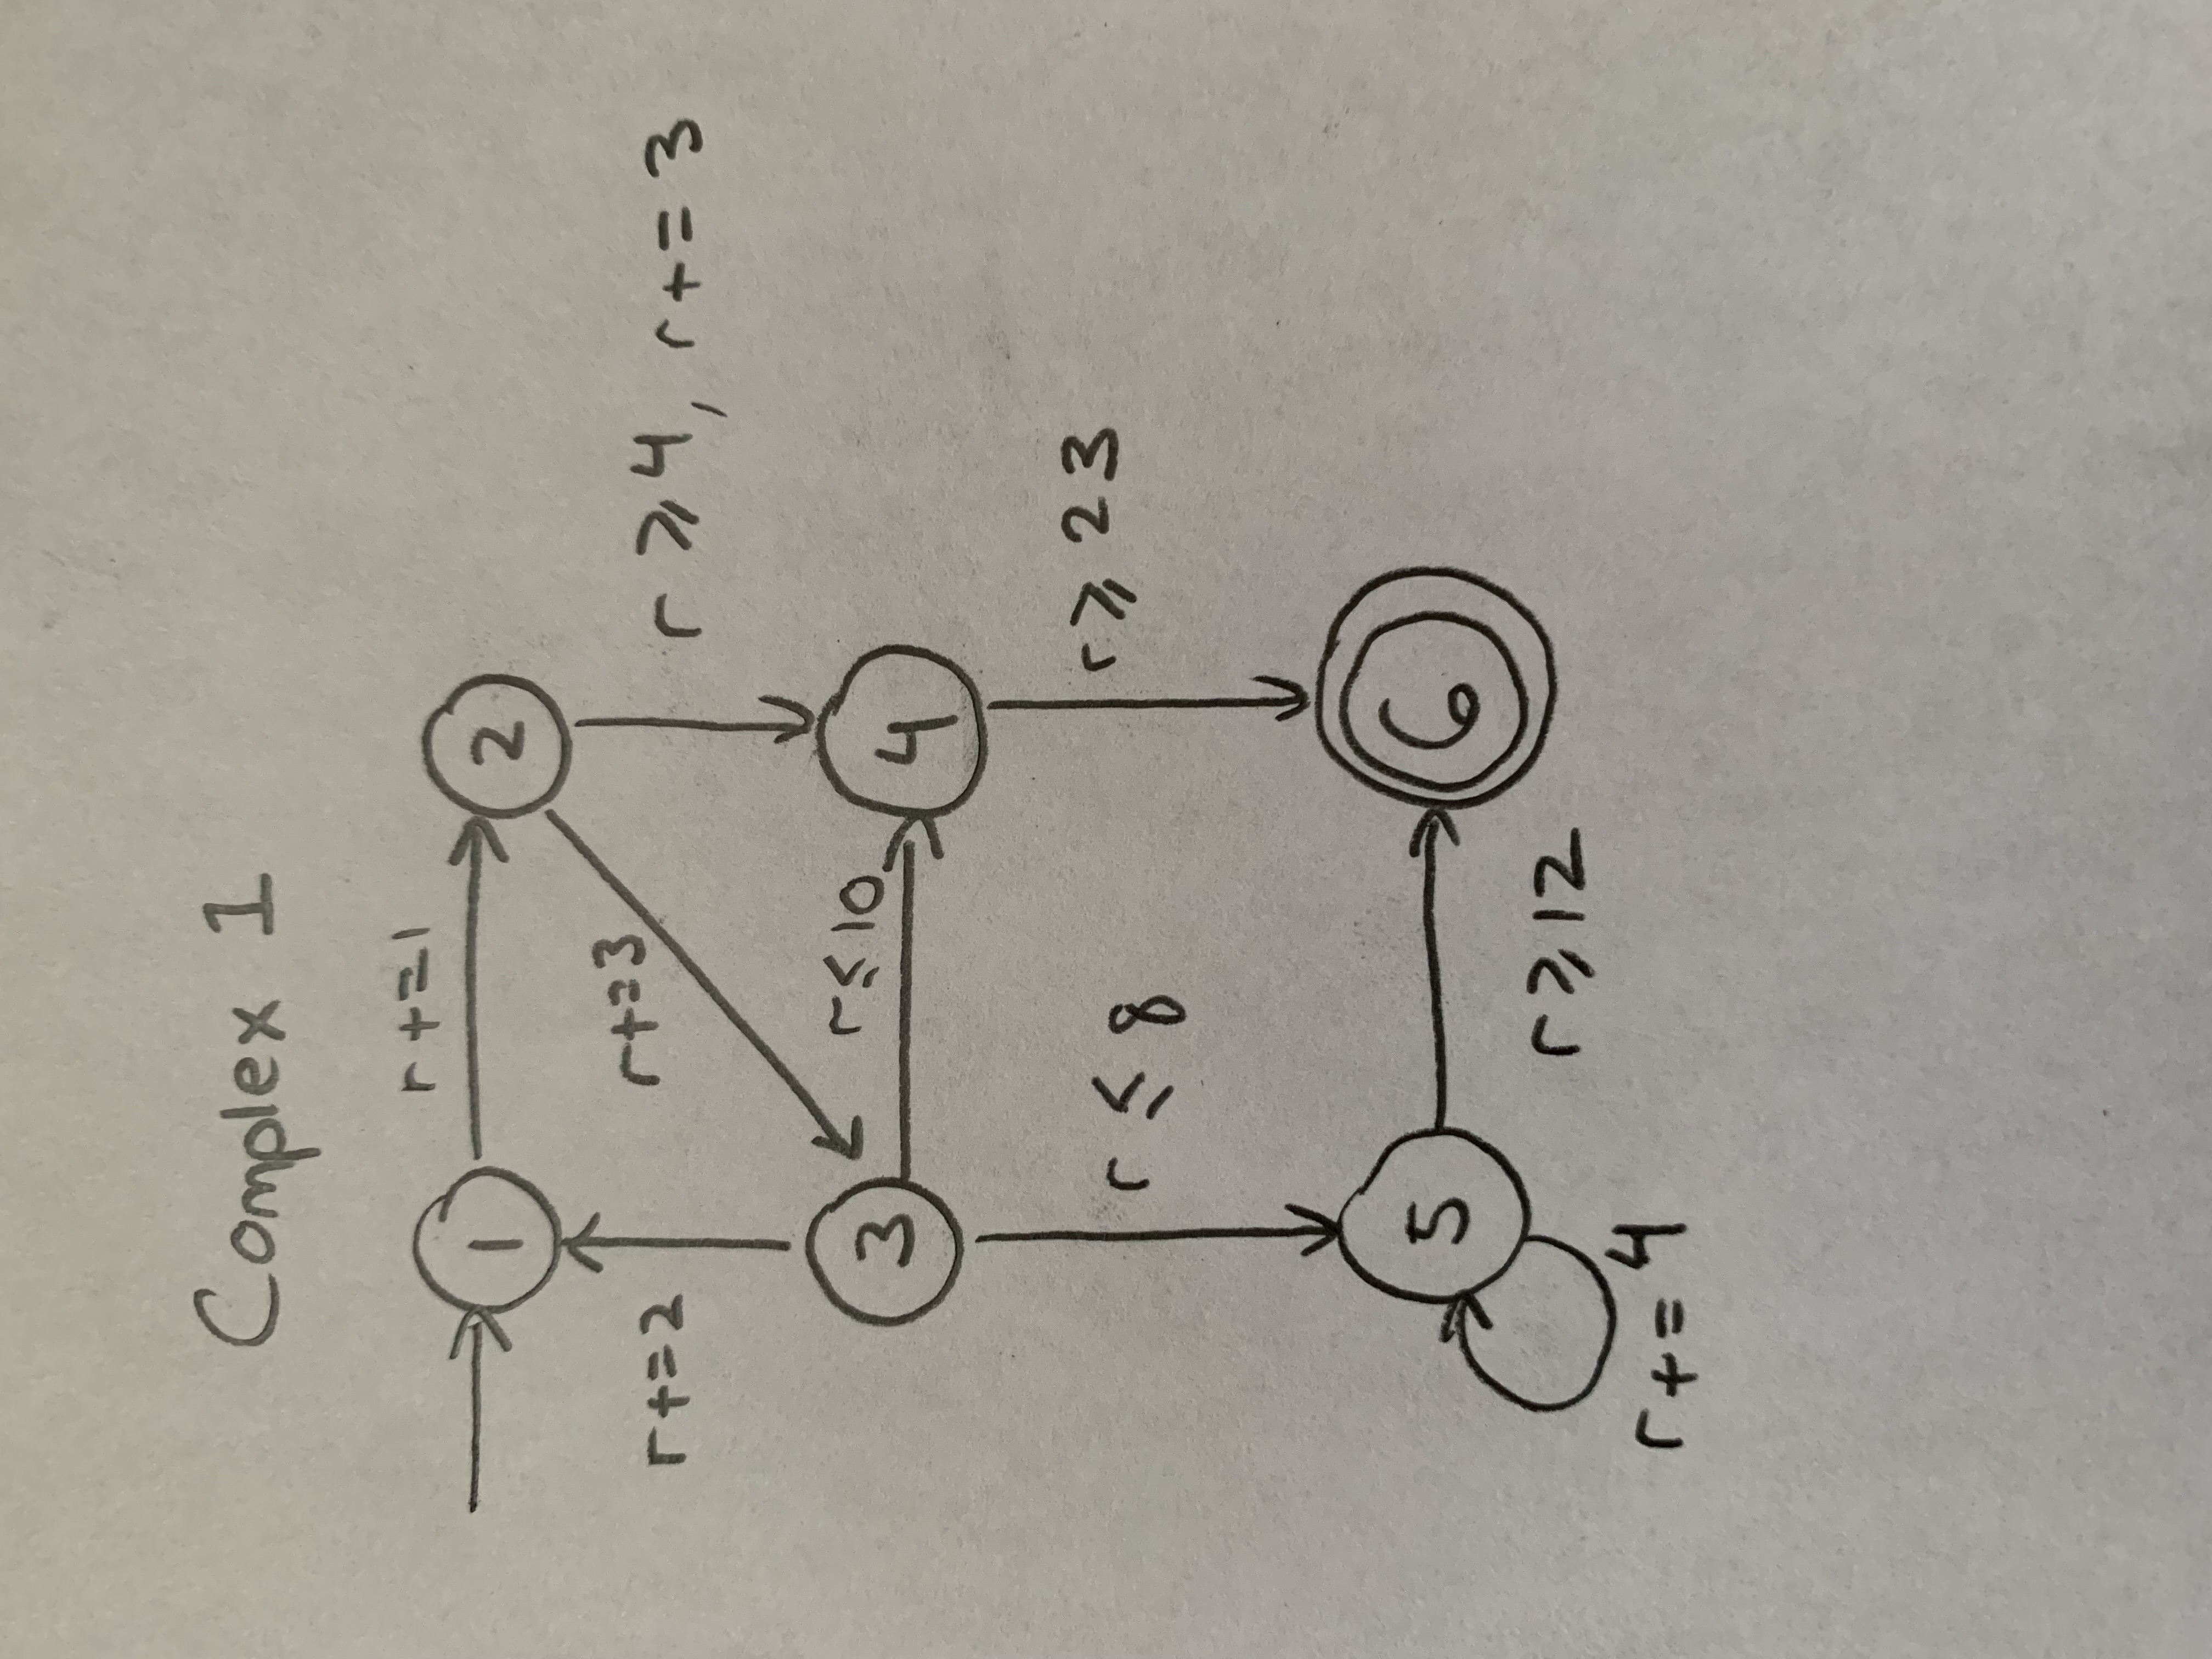 Complex 1
r+=1
1
2
r+=2
r+=3
r ⩾ 4, r+= 3
r ≤ 10
3
4
r ≤ 8
r ⩾ 23
5
6
r ⩾ 12
r+= 4